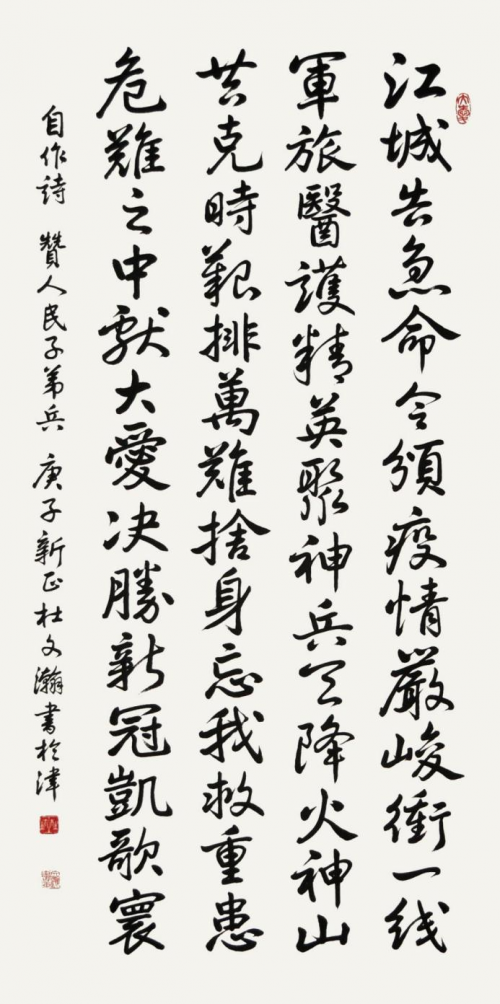 江城告急命令頒疫情嚴峻衝一线
軍旅醫護精英聚神兵天降火神山
共克時艱排萬難捨身忘我救重患
危難之中獻大愛决勝新冠凱歌寰
自作詩 贊人民子弟兵 庚子新正杜文瀚書於津